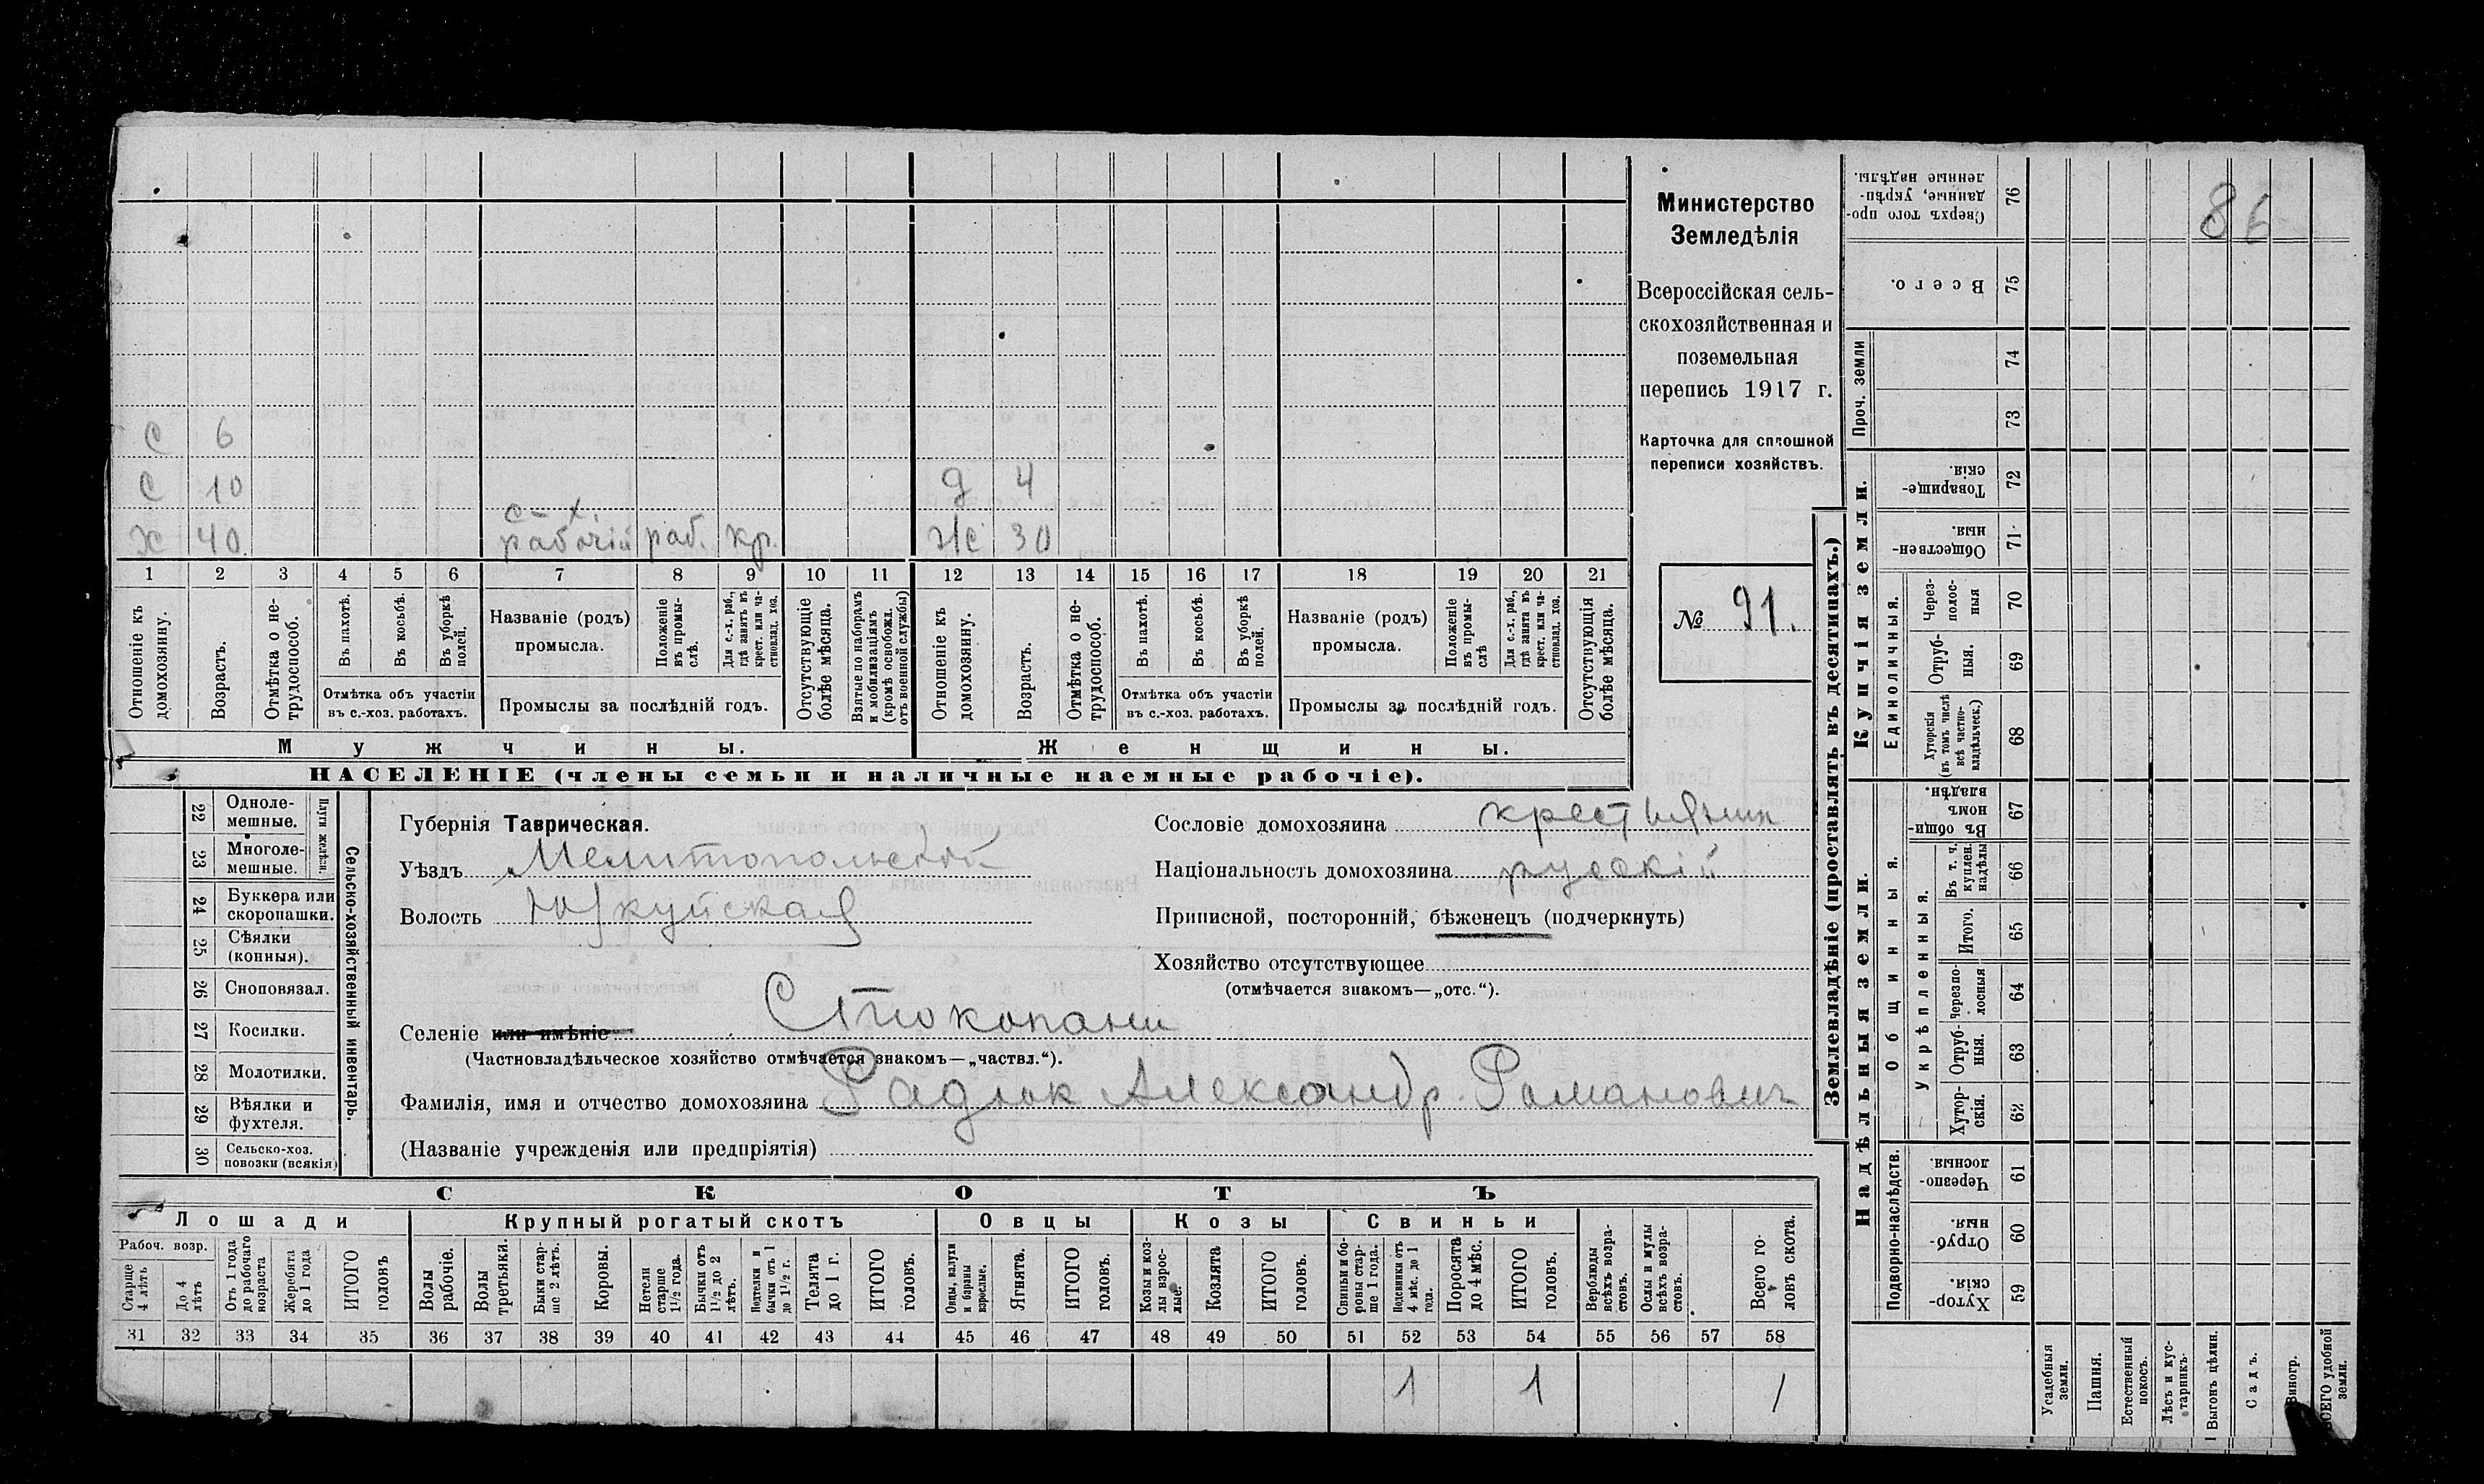 Министерство
Земледѣлія
Всероссійская сель-
скохозяйственная и
поземельная
перепись 1917 г.
Карточка для сплошной
переписи хозяйствъ.
№ 91.
86
С 6
С 10
д 4
с-х.
Х 40 рабочій раб. кр. Ж 30
1 2 3 4 5 6 7 8 9 10 11 12 13 14 15 16 17 18 19 20 21
Отношеніе къ домохозяину.
Возрастъ.
Отмѣтка о не-трудоспособ.
Въ пахотѣ.
Въ косьбѣ.
Въ уборкѣ полей.
Отмѣтка объ участіи въ с.-хоз. работахъ.
Названіе (родъ) промысла.
Положеніе въ промы-слѣ.
Для с.-х. раб., гдѣ занятъ въ крест. или ча-стновлад. хоз.
Промыслы за послѣдній годъ.
Отсутствующіе болѣе мѣсяца.
Взятые по наборамъ и мобилизаціямъ (кромѣ освобожд. отъ военной службы)
Отношеніе къ домохозяину.
Возрастъ.
Отмѣтка о не-трудоспособ.
Въ пахотѣ.
Въ косьбѣ.
Въ уборкѣ полей.
Отмѣтка объ участіи въ с.-хоз. работахъ.
Названіе (родъ) промысла.
Положеніе въ промы-слѣ
Для с.-х. раб., гдѣ занята въ крест. или ча-стновлад. хоз.
Промыслы за послѣдній годъ.
Отсутствующія болѣе мѣсяца.
Мужчины. Женщины.
НАСЕЛЕНІЕ (члены семьи и наличные наемные рабочіе).
22 Одноле-мешные.
23 Многоле-мешные.
Плуги желѣзн.
24 Буккера или скоропашки.
25 Сѣялки (конныя).
26 Сноповязал.
27 Косилки.
28 Молотилки.
29 Вѣялки и фухтеля.
30 Сельско-хоз. повозки (всякія)
Сельско-хозяйственный инвентарь.
Губернія Таврическая.
Уѣздъ Мелитопольской
Волость Юзкуйская
Селеніе или имѣніе Стокопани
(Частновладѣльческое хозяйство отмѣчается знакомъ—„частвл.“).
Фамилія, имя и отчество домохозяина Радюк Александр Романович
(Названіе учрежденія или предпріятія)
Сословіе домохозяина крестьянин
Національность домохозяина русскій
Приписной, посторонній, бѣженецъ (подчеркнуть)
Хозяйство отсутствующее
(отмѣчается знакомъ—„отс.“).
СКОТЪ
Лошади Крупный рогатый скотъ Овцы Козы Свиньи
Рабоч. возр.
Старше 4 лѣтъ
До 4 лѣтъ
Отъ 1 года до рабочаго возраста
Жеребята до 1 года
ИТОГО головъ
Волы рабочіе.
Волы третьяки.
Быки стар-ше 2 лѣтъ.
Коровы.
Нетели старше 1½ года.
Бычки отъ 1½ до 2 лѣтъ.
Подтелки и бычки отъ 1 до 1½ г.
Телята до 1 г.
ИТОГО головъ.
Овцы, валухи и бараны взрослые.
Ягнята.
ИТОГО головъ.
Козы и коз-лы взрос-лые.
Козлята
ИТОГО головъ.
Свиньи и бо-ровы стар-ше 1 года.
Подсвинки отъ 4 мѣс. до 1 года.
Поросята до 4 мѣс.
ИТОГО головъ.
Верблюды всѣхъ возра-стовъ.
Ослы и мулы всѣхъ возра-стовъ.
Всего го-ловъ скота.
31 32 33 34 35 36 37 38 39 40 41 42 43 44 45 46 47 48 49 50 51 52 53 54 55 56 57 58
1 1 1
Землевладѣніе (проставлять въ десятинахъ.)
Надѣльныя земли. Купчія земли. Проч. земли
Подворно-наслѣдств.
Общинныя.
Укрѣпленныя.
Единоличныя.
Хутор-скія. 59
Отруб-ныя. 60
Черезпо-лосныя. 61
Хутор-скія. 62
Отруб-ныя. 63
Черезпо-лосныя 64
Итого. 65
Въ т. ч. куплен. надѣлы 66
Въ общи-номъ владѣн. 67
Хуторскія (въ томъ числѣ всѣ частно-владѣльческ.) 68
Отруб-ныя. 69
Через-полос-ныя 70
Обществен-ныя. 71
Товарище-скія. 72
73
74
Всего. 75
Сверхъ того про-данные, укрѣп-ленные надѣлы. 76
Усадебныя земли.
Пашня.
Естественный покосъ.
Лѣсъ и кус-тарникъ.
Выгонъ цѣлин.
Садъ.
Виногр.
ВСЕГО удобной земли.